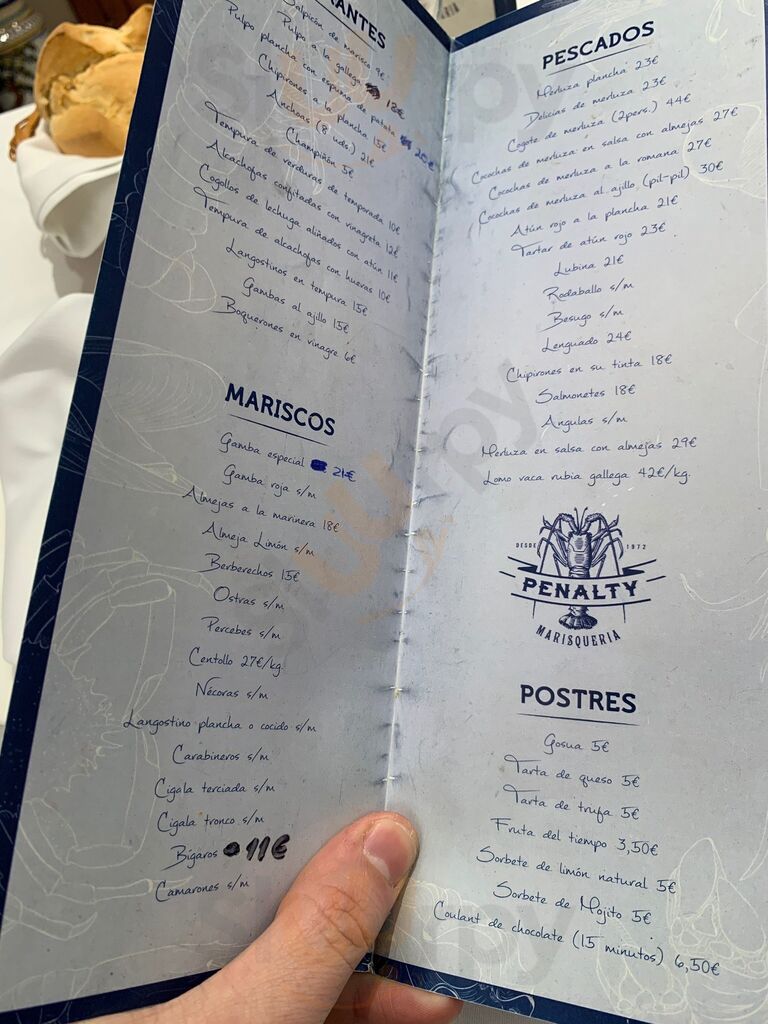 RANTES
Salpicón de marisco 9€
Pulpo a la gallega 18€
Pulpo plancha con espuma de patata 20€
Chipirones a la plancha 15€
Anchoas (8 uds.) 21€
Champiñón 5€
Tempura de verduras de temporada 10€
Alcachofas confitadas con vinagreta 12€
Cogollos de lechuga aliñados con atún 11€
Tempura de alcachofas con huevas 10€
Langostinos en tempura 15€
Gambas al ajillo 15€
Boquerones en vinagre 6€
MARISCOS
Gamba especial 21€
Gamba roja s/m
Almejas a la marinera 18€
Almeja Limón s/m
Berberechos 15€
Ostras s/m
Percebes s/m
Centollo 27€/kg.
Nécoras s/m
Langostino plancha o cocido s/m
Carabineros s/m
Cigala terciada s/m
Cigala tronco s/m
Bígaros 11€
Camarones s/m
PESCADOS
Merluza plancha 23€
Delicias de merluza 23€
Cogote de merluza (2pers.) 44€
Cocochas de merluza en salsa con almejas 27€
Cocochas de merluza a la romana 27€
Cocochas de merluza al ajillo (pil-pil) 30€
Atún rojo a la plancha 21€
Tartar de atún rojo 23€
Lubina 21€
Rodaballo s/m
Besugo s/m
Lenguado 24€
Chipirones en su tinta 18€
Salmonetes 18€
Angulas s/m
Merluza en salsa con almejas 29€
Lomo vaca rubia gallega 42€/kg.
DESDE 1972
PENALTY
MARISQUERIA
POSTRES
Gosua 5€
Tarta de queso 5€
Tarta de trufa 5€
Fruta del tiempo 3,50€
Sorbete de limón natural 5€
Sorbete de Mojito 5€
Coulant de chocolate (15 minutos) 6,50€